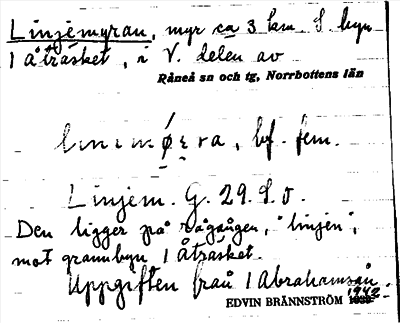 Linjemyran, myr ca 3 km S. byn
1 Åträsket, i V. delen av
Råneå sn och tg, Norrbottens län
bf. fem.
Linjem. G. 29. S. O.
Den ligger på rågången, "linjen",
mot grannbyn 1 Åträsket.
Uppgiften från 1 Abrahamsån
EDVIN BRÄNNSTRÖM 1940